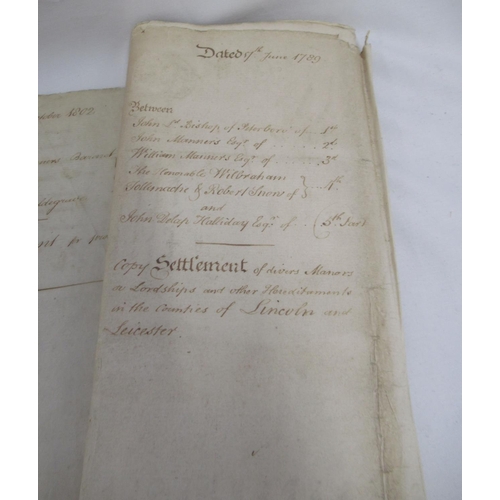 Dated 9th June 1789
Between
John Ld Bishop of Peterboro' of 1st
John Manners Esqr. of 2d
William Manners Esqr. of 3d
The Honorable Wilbraham
Tollemache & Robert Snons of 4th
and
John Delap Halliday Esqr. of 5th Part
Copy Settlement of divers Manors
or Lordships and other Hereditaments
in the Counties of Lincoln and
Leicester
1802